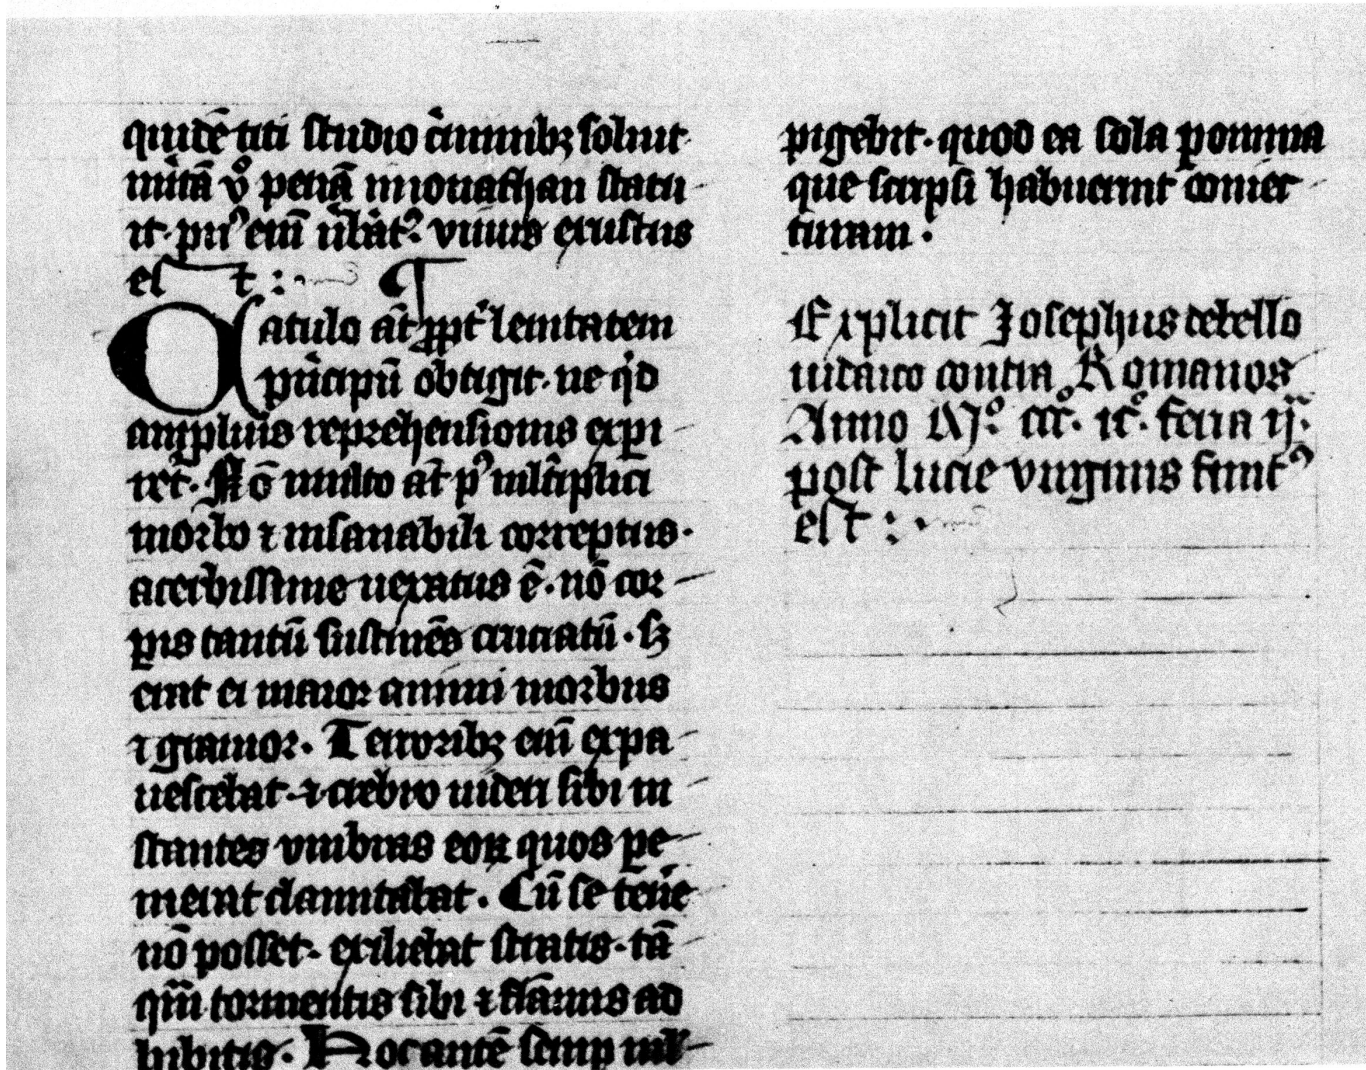 quidē titi studio c̓iminibꝫ soluit
mītā v̊o penā in ionathan statu
it · priꝰ em̄ ūb̓at᷒ viuus exustus
est :
Catulo at̄ ꝓpt̓ lenitatem
p̓ncipū obtigit · ne qͥd
amplius reprehensionis expi
ret̓ · Nō multo at̄ pꝰ ml̓tiplici
morbo ⁊ insanabili correptus ·
acerbissime uexatus ē · nō cor
ꝑis tantū sustinēs cruciatū · sꝫ
erat ei maior animi morbus
⁊ grauior · Terroribꝫ eni̅ expa
uescebat · ⁊ crebro uideri sibi in
stantes vmbras eoꝝ quos ꝑe
merat clamitabat · Cū se tene̓
nō posset · exiliebat stratis · tā
qm̄ tormentis sibi ⁊ flāmis ad
hibitis · Hoc autē semꝑ ml̓
pigebit · quod ea sola ꝑ omnia
que scripsi habuerint coniec
turam ·
Explicit Josephus de bello
iudaico contra Romanos
Anno Mͦ · cccͦ · xcͦ · feria ij ·
post lucie virginis finitꝰ
est :